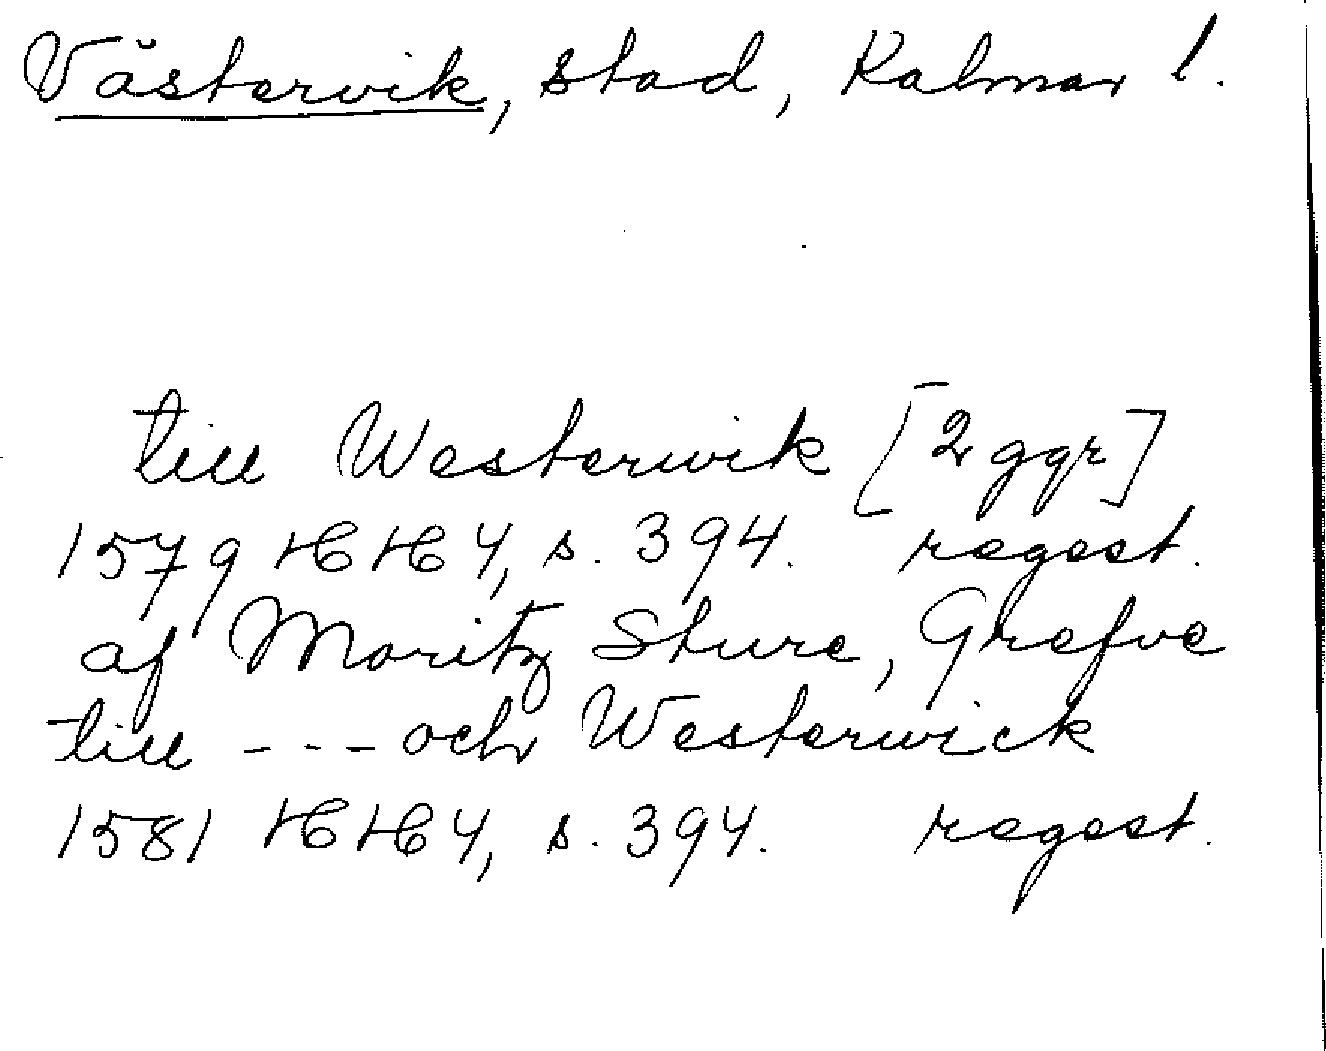 Västervik, stad, Kalmar l.
till Westerwik [2 ggr]
1579 HH 4, s. 394. regest.
af Moritz Sture, Grefve
till - - - och Westerwick
1581 HH 4, s. 394. regest.